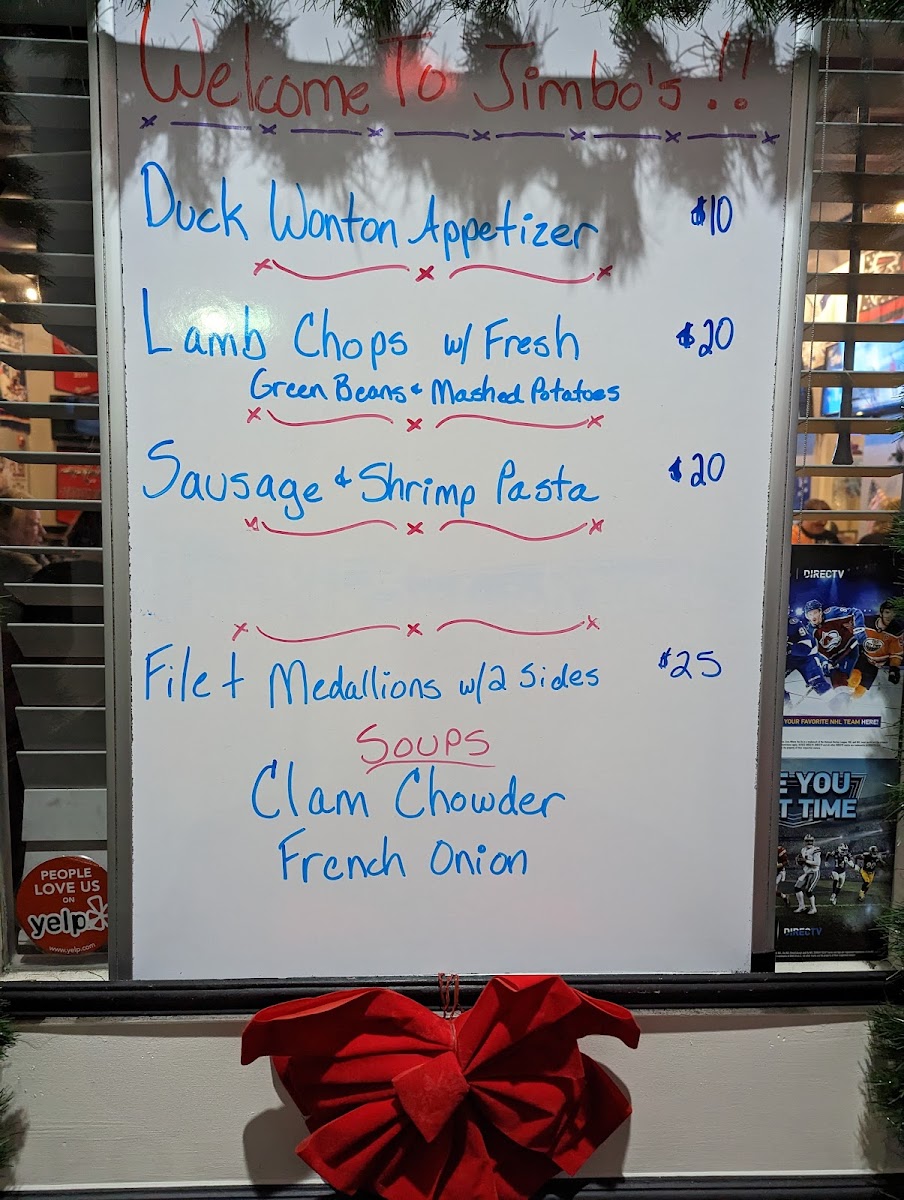 Welcome To Jimbo's!!
Duck Wonton Appetizer $10
Lamb Chops w/ Fresh $20
Green Beans & Mashed Potatoes
Sausage & Shrimp Pasta $20
Filet Medallions w/2 Sides $25
Soups
Clam Chowder
French Onion
DIRECTV
YOUR FAVORITE NHL TEAM HERE!
E YOU
T TIME
DIRECTV
PEOPLE
LOVE US
ON
yelp
www.yelp.com